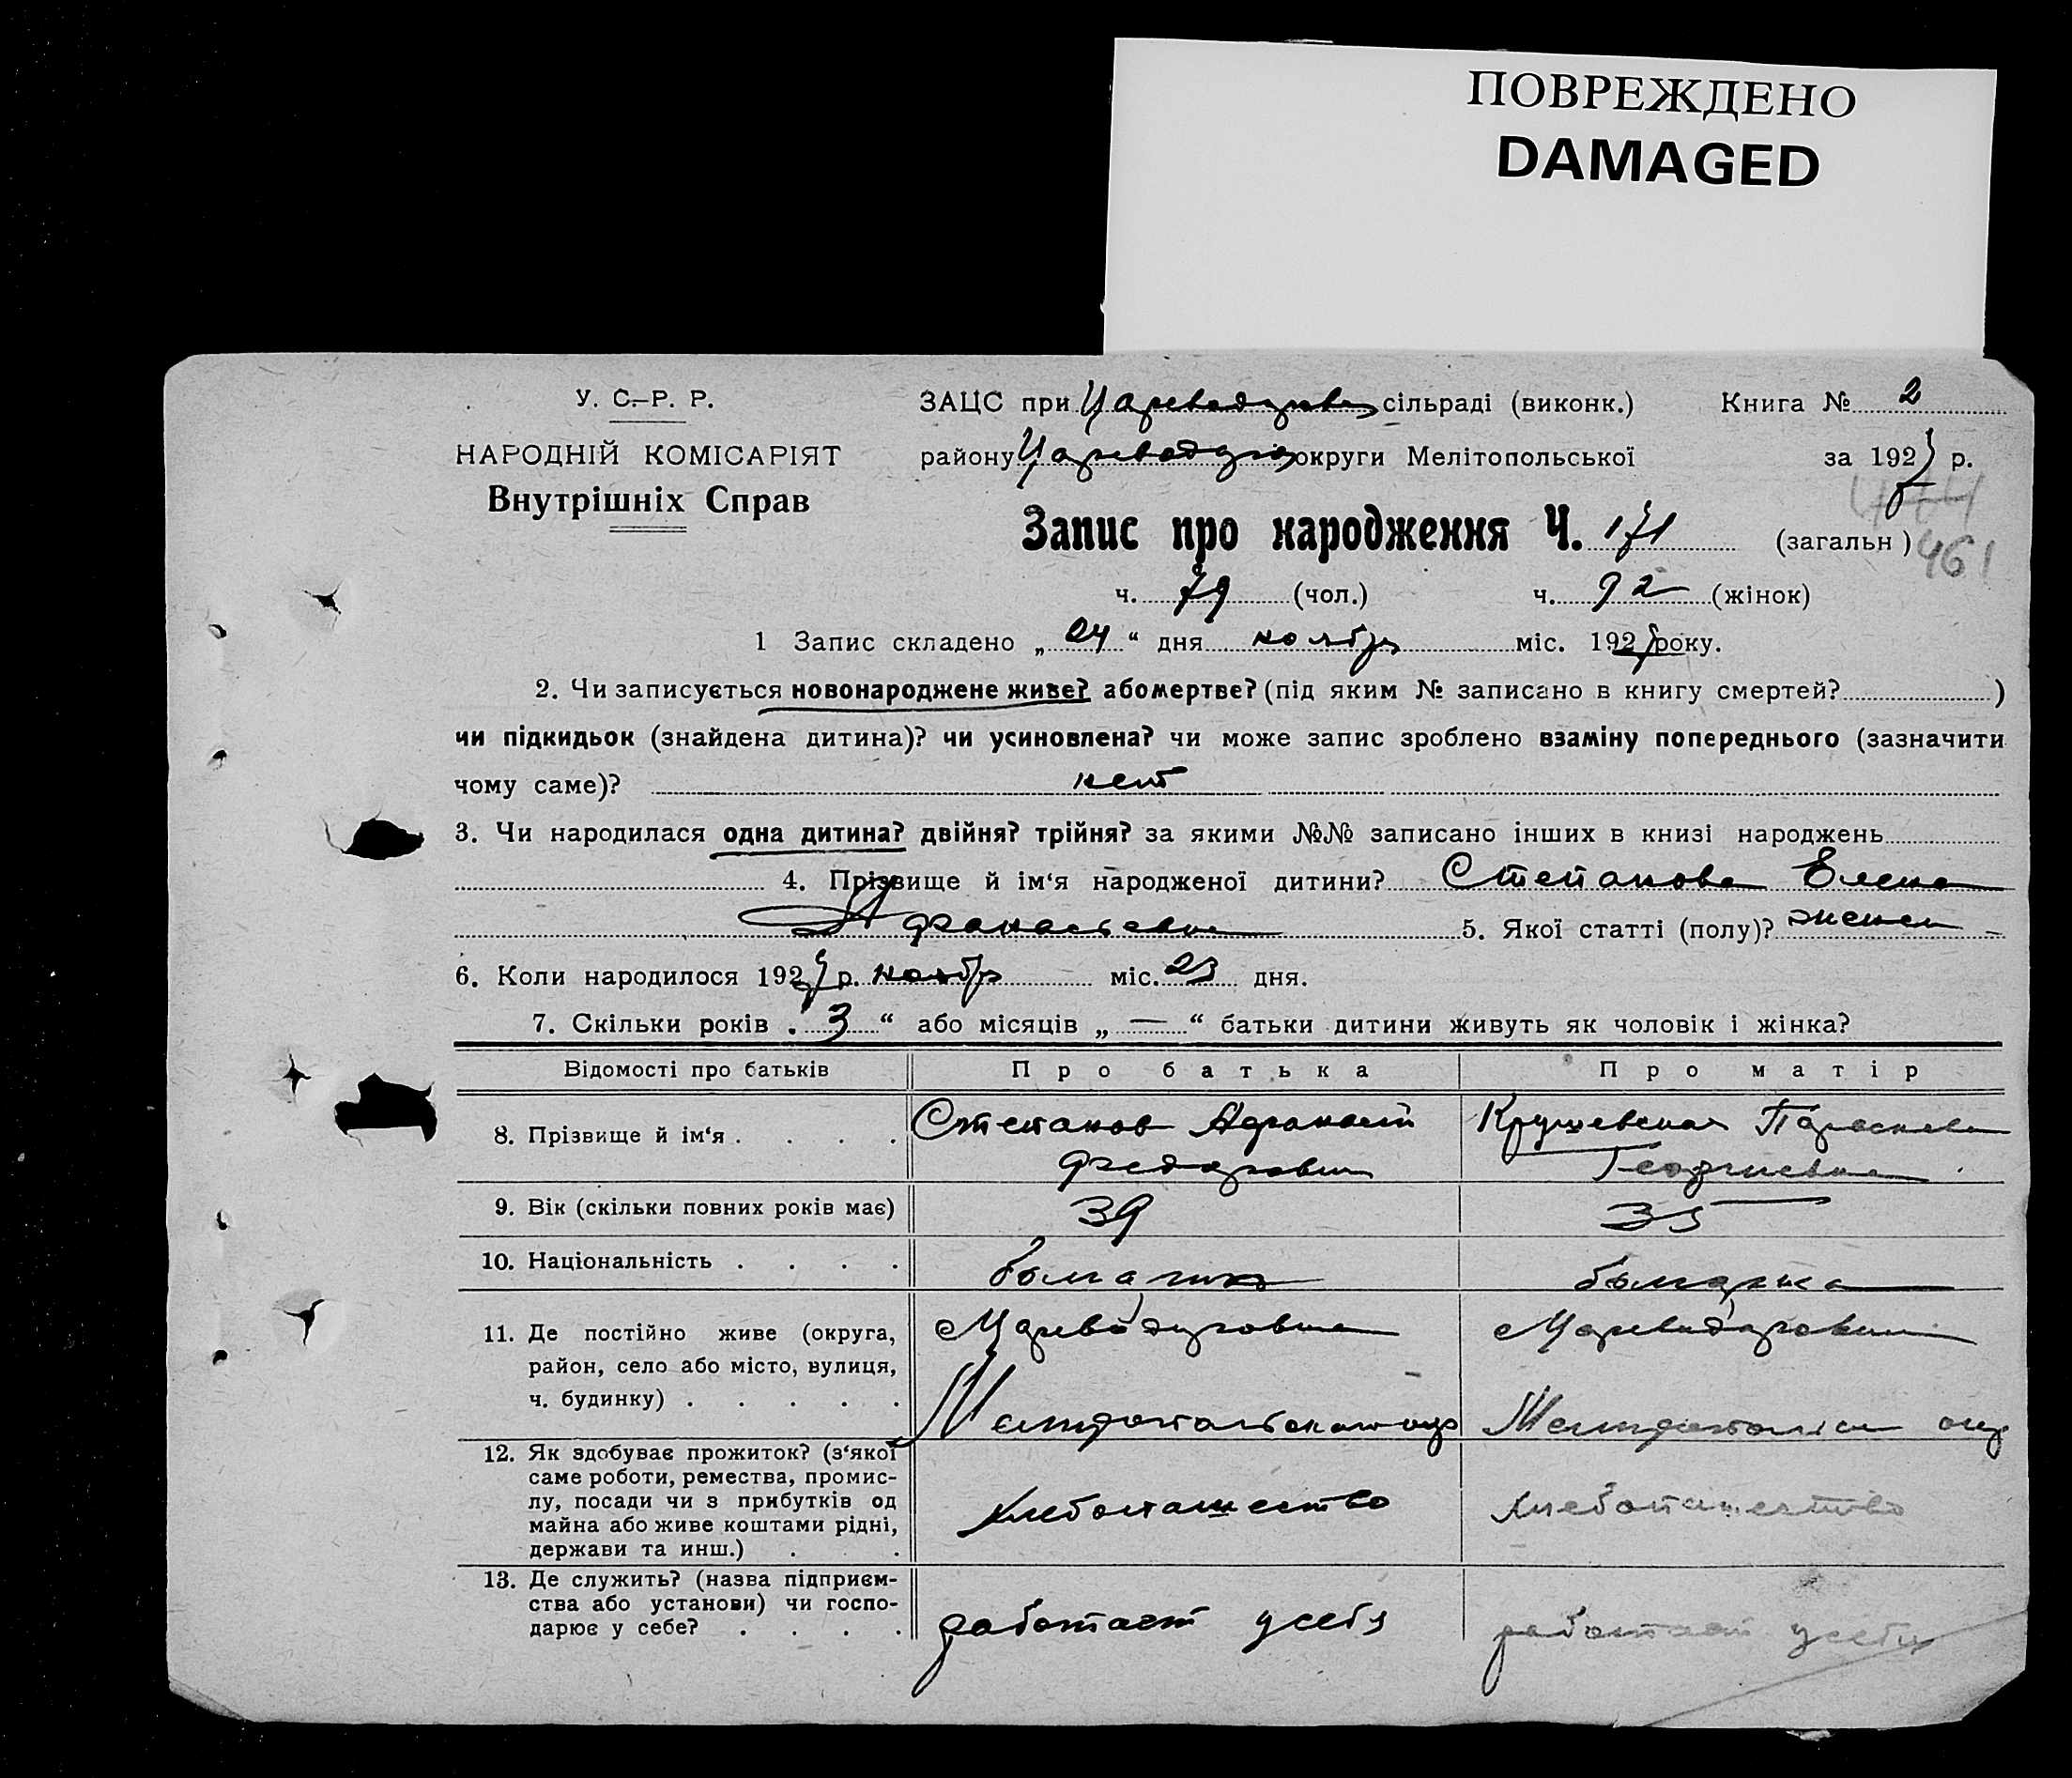 ПОВРЕЖДЕНО
DAMAGED
У. С.–Р. Р.
ЗАЦС при сільраді (виконк.) Книга № 2
НАРОДНІЙ КОМІСАРІЯТ
району округи Мелітопольської за 192 р.
Внутрішніх Справ
Запис про народження Ч. 171 (загальн) 461
ч. 79 (чол.) ч. 92 (жінок)
1 Запис складено „ 24 “ дня ноябр міс. 192 року.
2. Чи записується новонароджене живе? або мертве? (під яким № записано в книгу смертей? )
чи підкидьок (знайдена дитина)? чи усиновлена? чи може запис зроблено взаміну попереднього (зазначити
чому саме)? нет
3. Чи народилася одна дитина? двійня? трійня? за якими №№ записано інших в книзі народжень
4. Прізвище й ім‘я народженої дитини? Степанова Елена
Афанасьевна 5. Якої статті (полу)? женск
6. Коли народилося 192 р. ноябр міс. 23 дня.
7. Скільки років „ 3 “ або місяців „ — “ батьки дитини живуть як чоловік і жінка?
Відомості про батьків Про батька Про матір
8. Прізвище й ім‘я Степанов Афанасий Федорович Крушевская Парасковия Георгиевна
9. Вік (скільки повних років має) 39 35
10. Національність болгарин болгарка
11. Де постійно живе (округа,
район, село або місто, вулиця,
ч. будинку) Мелитопольского окр Мелитопольск окр
12. Як здобуває прожиток? (з‘якої
саме роботи, ремества, промис-
лу, посади чи з прибутків од
майна або живе коштами рідні,
держави та инш.) хлебопашество хлебопашество
13. Де служить? (назва підприєм-
ства або установи) чи госпо-
дарює у себе? работает у себя работает у себя